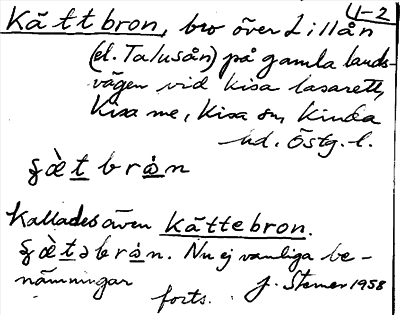 1-2
Kättbron, bro över Lillån
(el. Talusån) på gamla lands-
vägen vid Kisa lasarett,
Kisa me, Kisa sn, Kinda
hd. Östg. l.
Kallades även Kättebron.
Nu ej vanliga be-
nämningar
forts. J. Stemer 1958